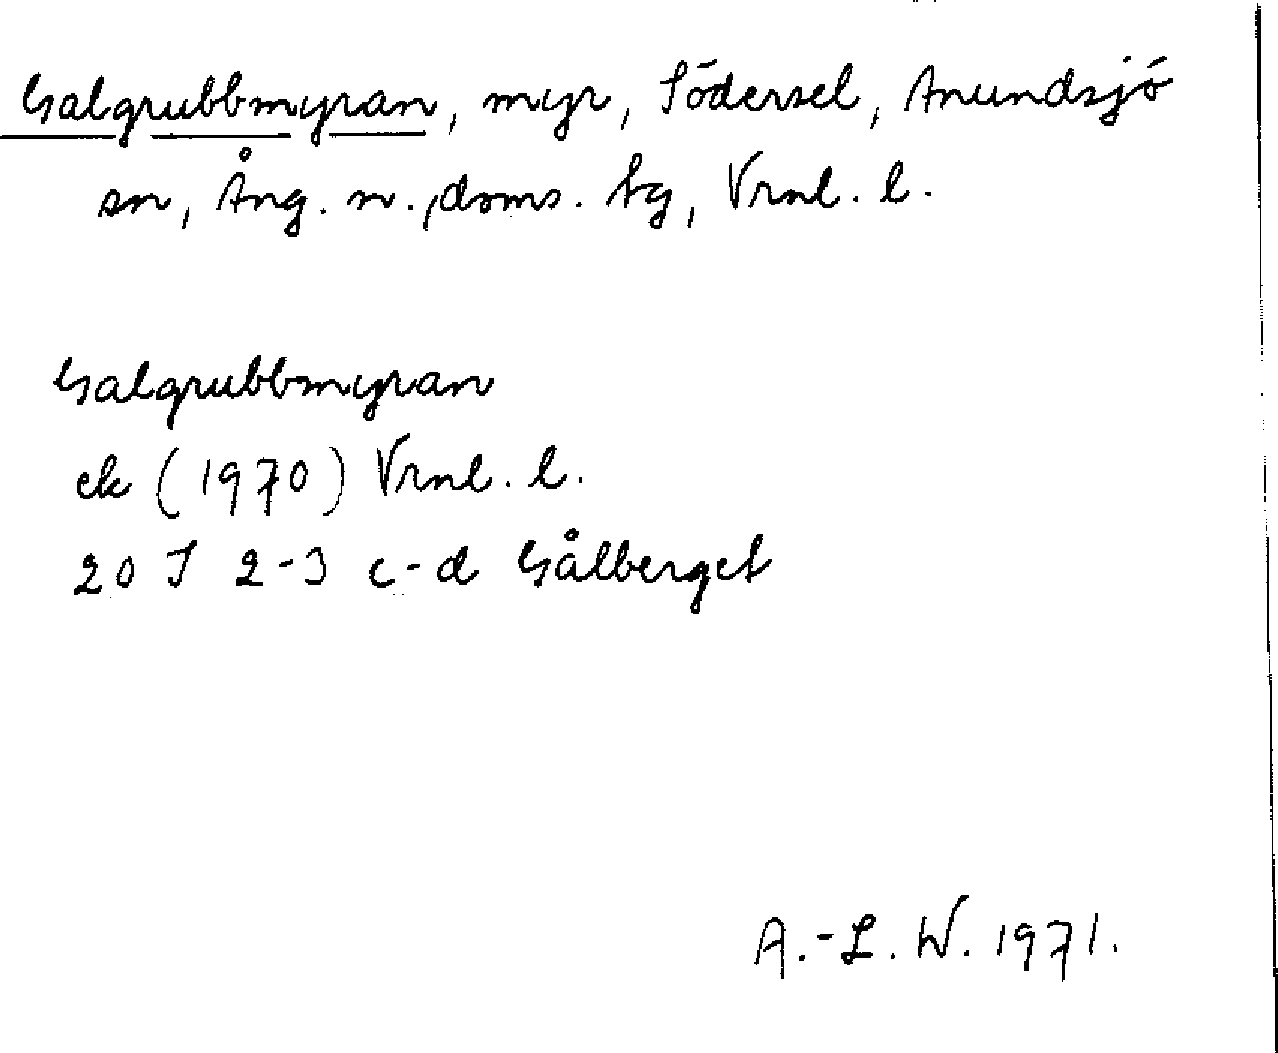 Galgrubbmyran, myr, Södersel, Anundsjö
sn, Ång. n., doms. tg, Vrnl. l.
Galgrubbmyran
ek (1970) Vrnl. l.
20 J 2-3 c-d Gålberget
A.-L. W. 1971.